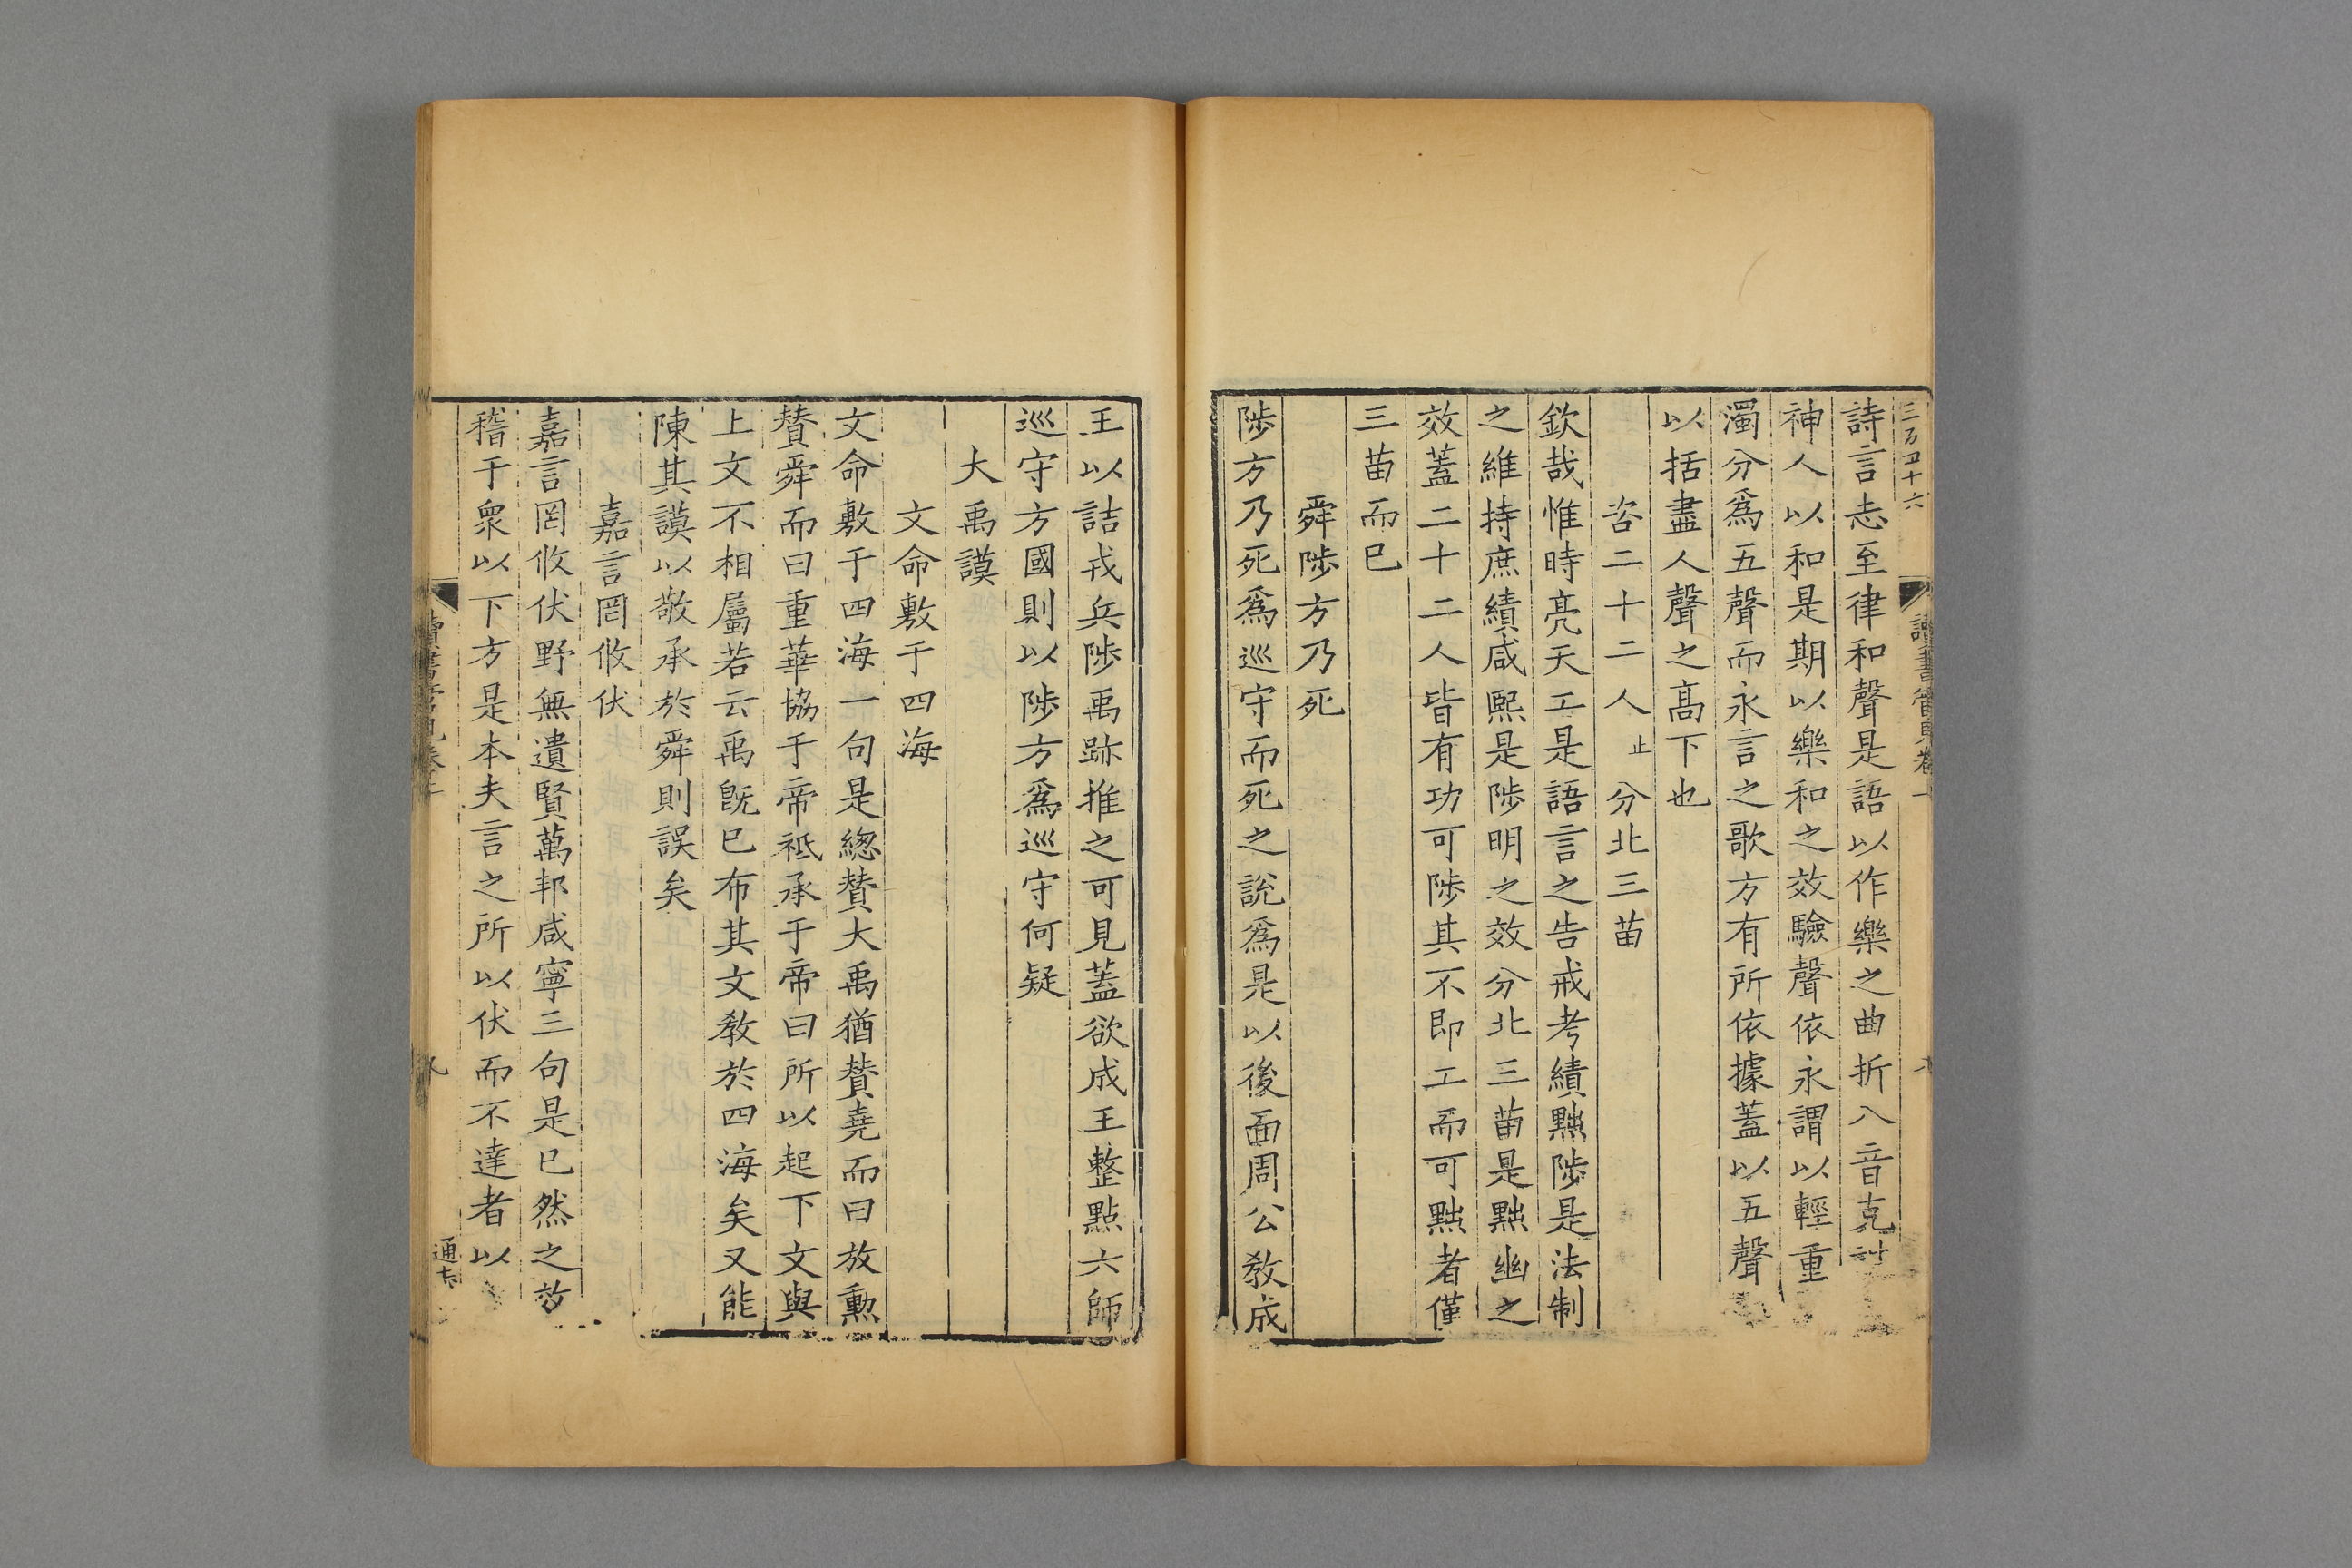 三百五十六
讀書管見卷
詩言志至律和聲是語以作樂之曲折八音克
神人以和是期以樂和之效驗聲依永謂以輕重
濁分爲五聲而永言之歌方有所依據蓋以五聲
以括盡人聲之高下也
咨二十二人止分北三苗
欽哉惟時亮天工是語言之告戒考績黜陟是法制
之維持庶績咸熙是陟明之效分北三苗是黜幽之
效蓋二十二人皆有功可陟其不即工而可黜者僅
三苗而巳
舜陟方乃死
陟方乃死爲巡守而死之說爲是以後面周公敎成
王以詰戎兵陟禹跡推之可見蓋欲成王整點六師
巡守方國則以陟方爲巡守何疑
大禹謨
文命敷于四海
文命敷于四海一句是緫賛大禹猶賛堯而曰放勲
賛舜而曰重華協于帝祗承于帝曰所以起下文與
上文不相屬若云禹旣巳布其文敎於四海矣又能
陳其謨以敬承於舜則誤矣
嘉言罔攸伏
嘉言罔攸伏野無遺賢萬邦咸寧三句是巳然之效
稽于衆以下方是本夫言之所以伏而不達者以
讀書管見卷
九
通志